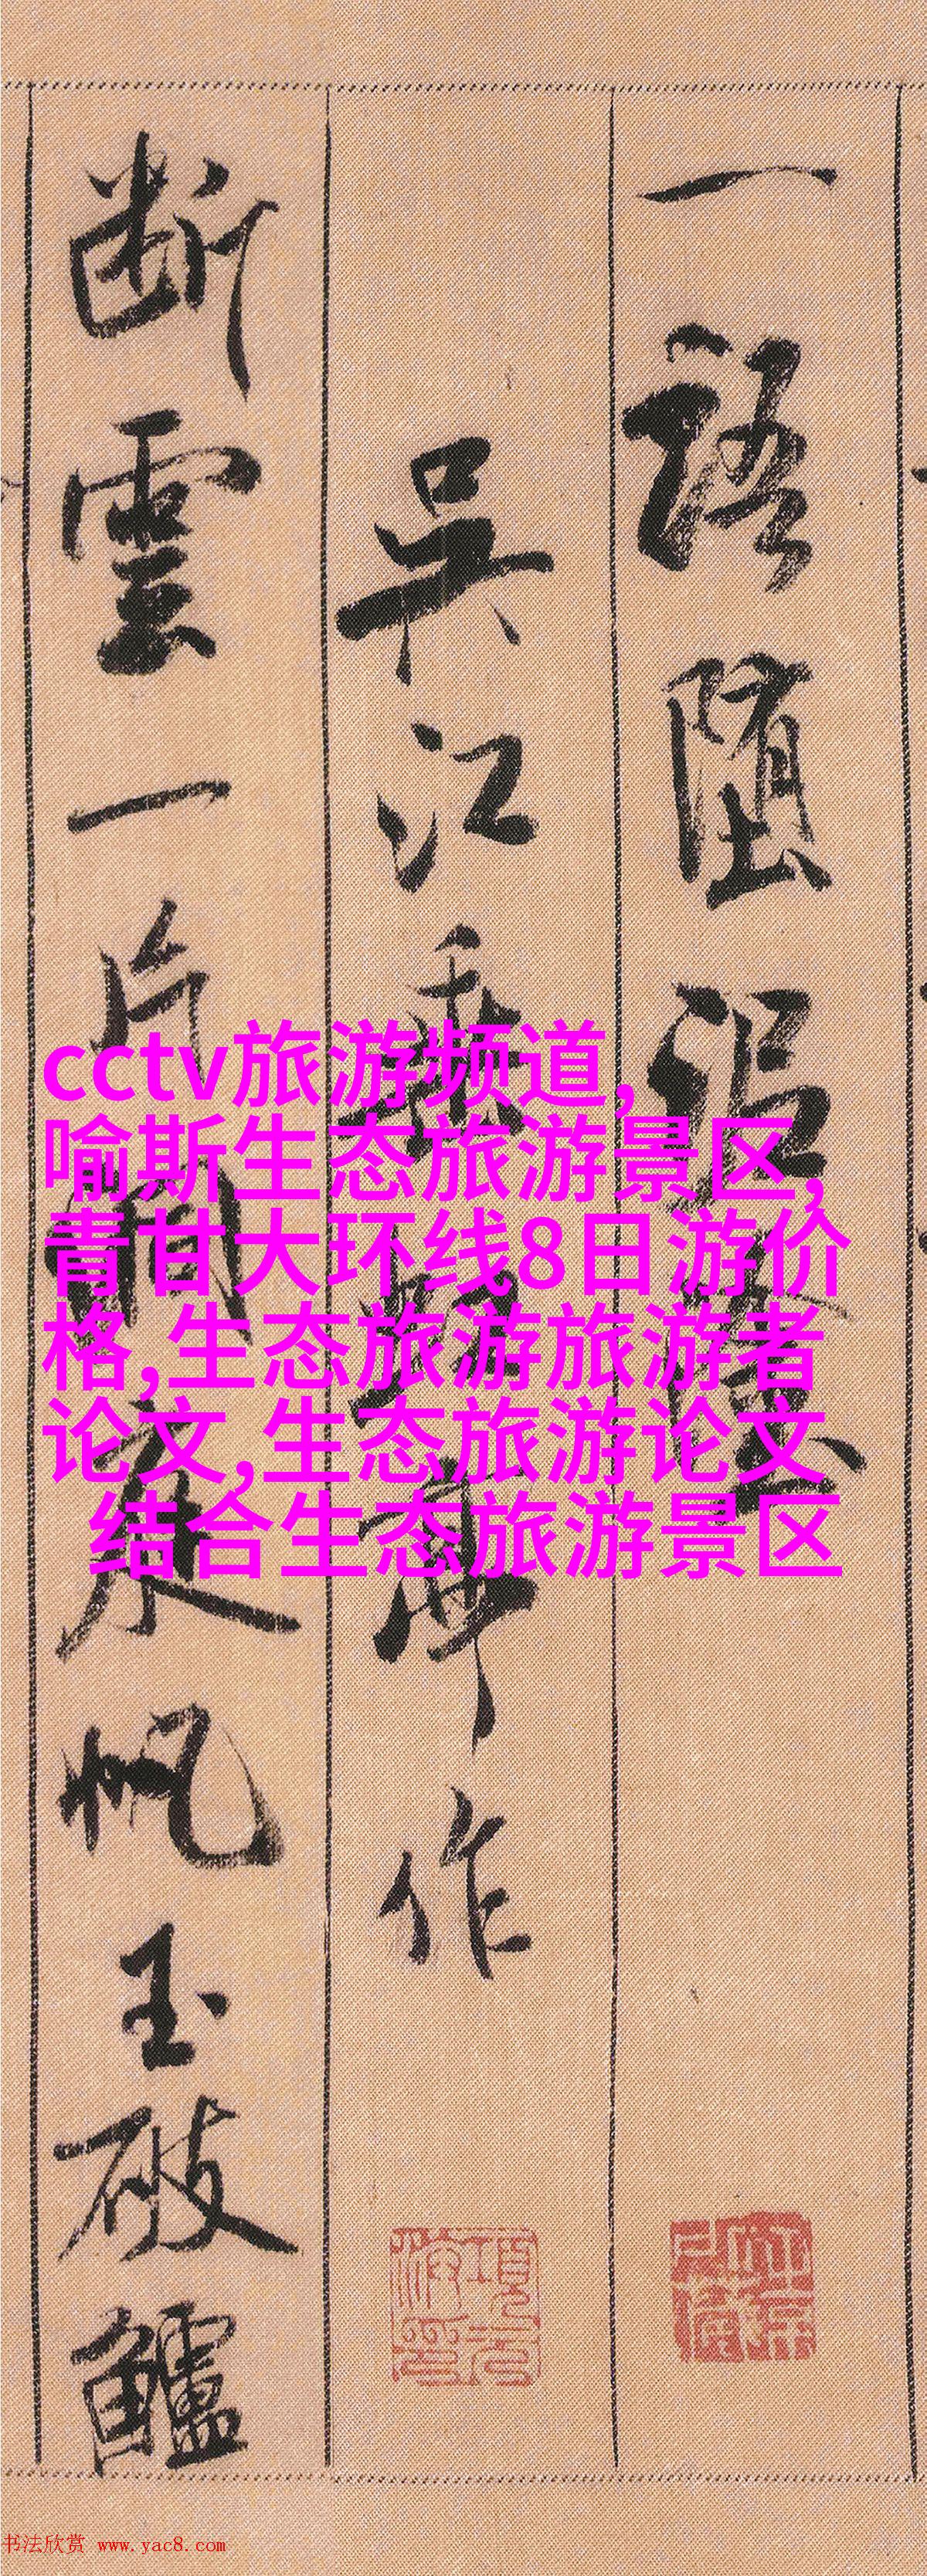 一語墮泥塗
吳江垂虹亭作
断雲一片洞庭帆玉破鱸
cctv旅游频道,
喻斯生态旅游景区,
青甘大环线8日游价
格,生态旅游旅游者
论文,生态旅游论文
结合生态旅游景区
书法欣赏 www.yac8.com